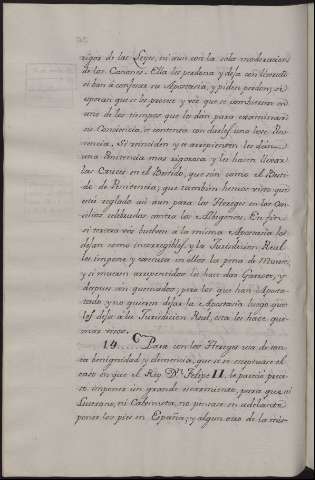 rigor de las Leyes, ni aun con la sola moderacion
de los Canones. Ella les perdona y deja con libertad
si ban à confesar su Apostasia, y piden perdon; si
esperan que se les pruebe y vèe que se combierten en
uno de los tiempos que les dán para examinar
su Conciencia, se contenta con darles una leve Pe-
nitencia. Si reinciden y se arrepienten les dá
una Penitencia mas rigorosa y les hacen llevar
las Cruces en el Vestido, que son como el Vesti-
do de Penitencia; que tambien hemos visto que
està reglado asi aun para los Hereges en los Con-
cilios celebrados contra los Albigenses. En fin
si tercera vès buelven à la misma Apostasia los
dejan como incorregibles, y la Jurisdicion Real
les impone y executa en ellos la pena de Muerte;
y si mueren arrepentidos les hace dar Garrote, y
despues son quemados; pero los que han Aposta-
tado y no quieren dejar la Apostasia luego que
los deja à la Jurisdicion Real, esta les hace que-
mar vivos.
14. Para con los Hereges usa de tan-
ta benignidad y clemencia, que si se exceptuare el
caso en que el Rey Dn. Felipe II, le parecio preci-
so imponer un grande escarmiento, para que ni
Luterano, ni Calvinista, no pensase en adelante
poner los pies en España; y algun otro de la mis-